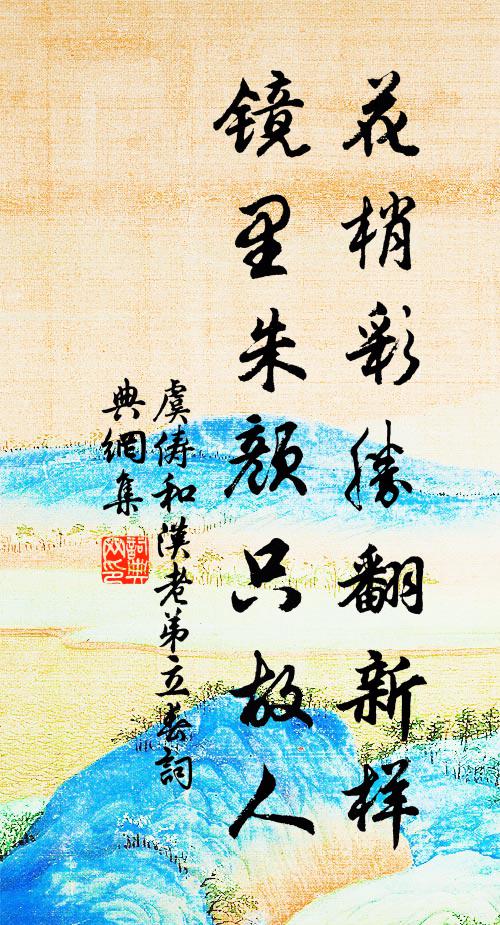 花梢彩胜翻新样
镜里朱颜只故人
虞俦和汉老弟立春詞
典網集
詞典網印